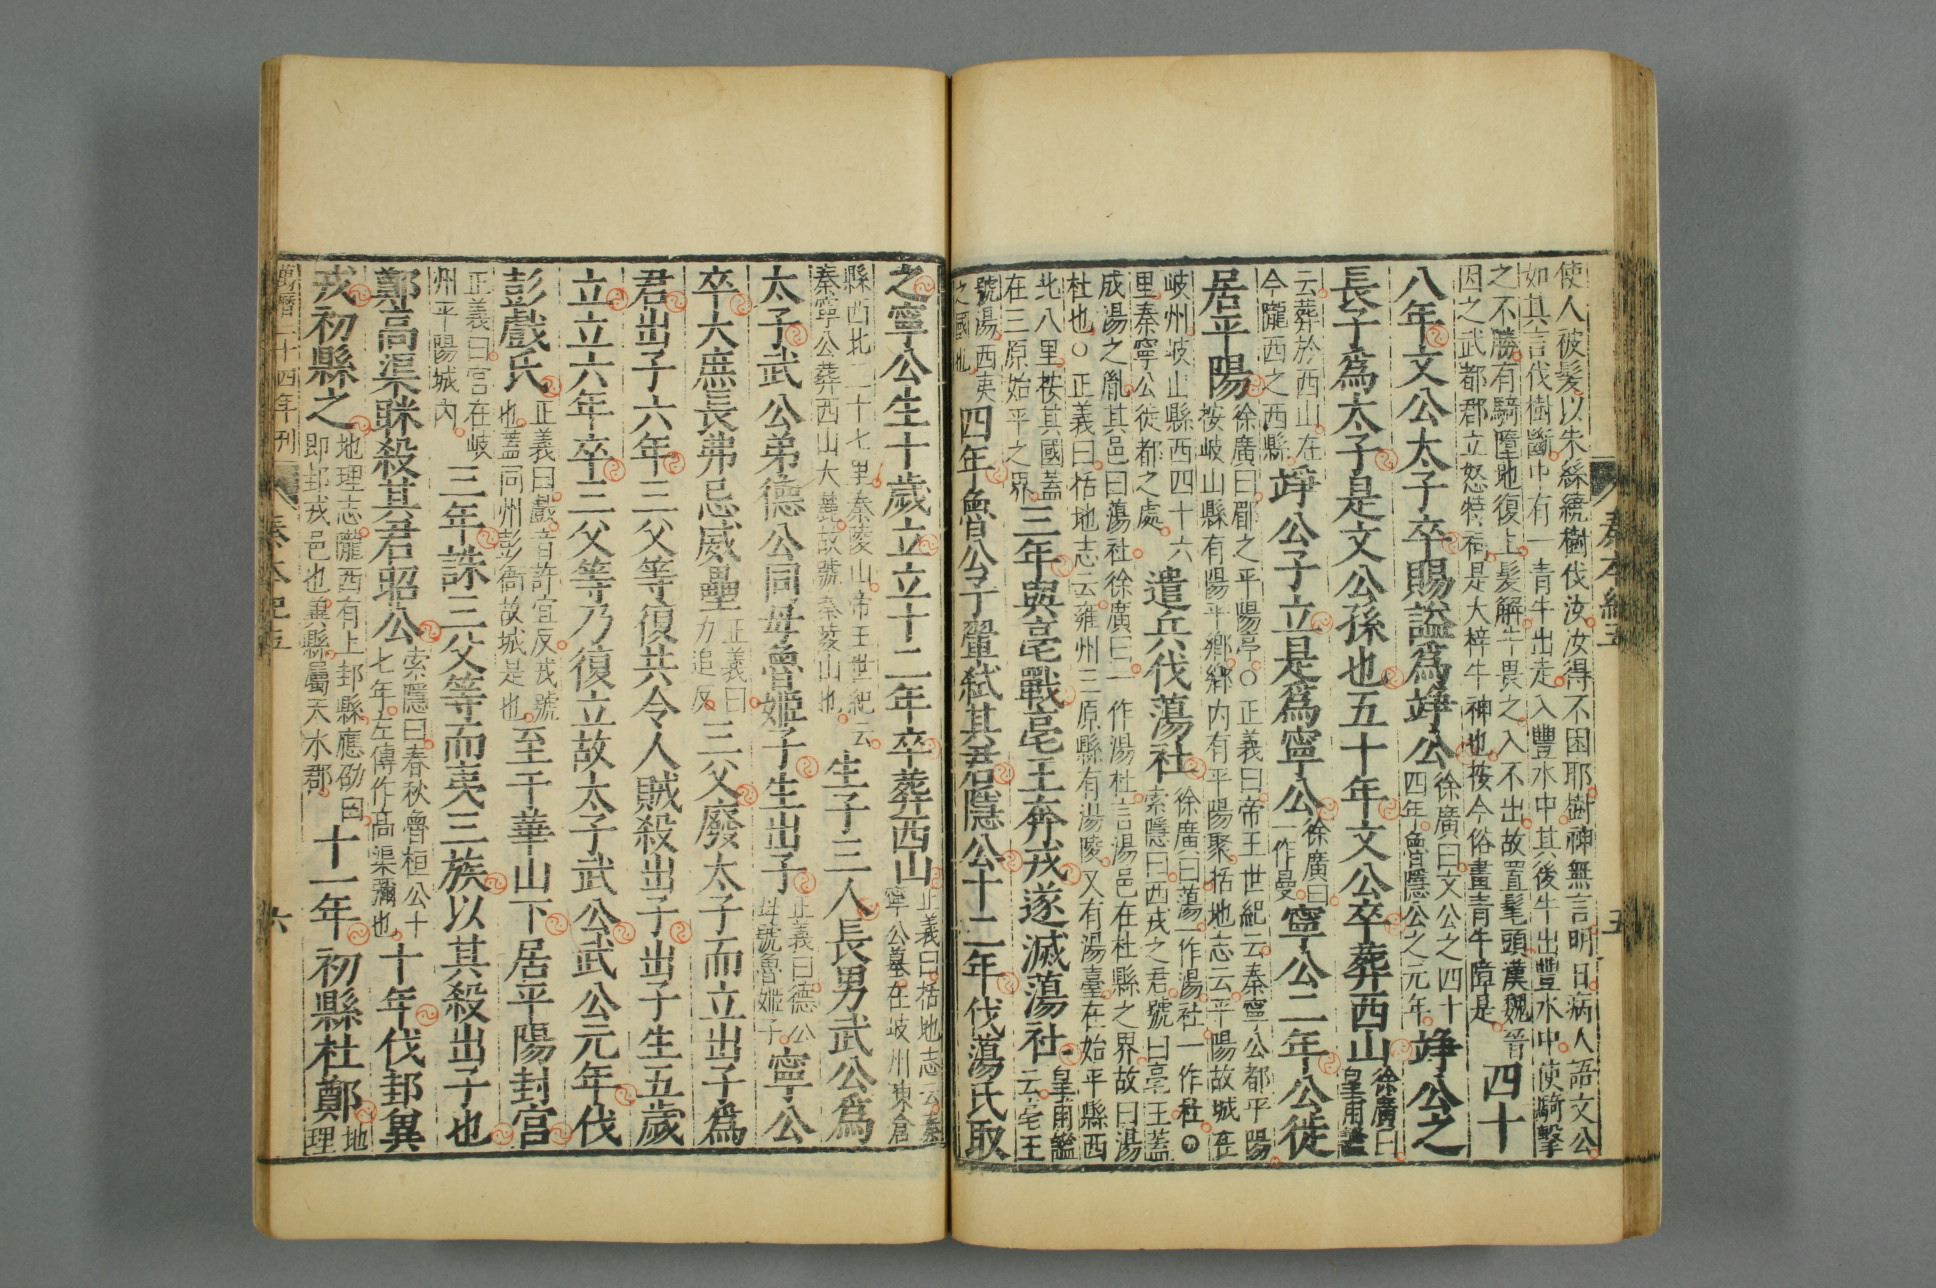 使人被髮以朱絲繞樹伐汝汝得不困耶樹神無言明日病人語文公
如其言伐樹斷中有一青牛出走入豐水中其後牛出豐水中使騎擊
之不勝有騎墮地復上髮解牛畏之入不出故置髦頭漢魏晉
因之武都郡立怒特祠是大梓牛神也按今俗畫青牛障是
四十
八年文公太子卒賜謚爲竫公
徐廣曰文公之四十
四年魯隱公之元年
竫公之
長子爲太子是文公孫也五十年文公卒葬西山
徐廣曰
皇甫謐
云葬於西山在
今隴西之西縣
竫公子立是爲寧公
徐廣曰
一作曼
寧公二年公徙
居平陽
徐廣曰郿之平陽亭○正義曰帝王世紀云秦寧公都平陽
按岐山縣有陽平鄉鄉內有平陽聚括地志云平陽故城在
岐州岐山縣西四十六
里秦寧公徙都之處
遣兵伐蕩社
徐廣曰蕩一作湯社一作杜○
索隱曰西戎之君號曰亳王蓋
成湯之胤其邑曰蕩社徐廣曰一作湯杜言湯邑在杜縣之界故曰湯
杜也○正義曰括地志云雍州三原縣有湯陵又有湯臺在始平縣西
北八里按其國蓋
在三原始平之界
三年與亳戰亳王奔戎遂滅蕩社
皇甫謐
云亳王
號湯西夷
之國也
四年魯公子翬弑其君隱公十二年伐蕩氏取
秦本紀五
五
之寧公生十歲立立十二年卒葬西山
正義曰括地志云秦
寧公墓在岐州陳倉
縣西北二十七里秦陵山帝王世紀云
秦寧公葬西山大麓故號秦陵山也
生子三人長男武公爲
太子武公弟德公同母魯姬子生出子
正義曰德公
母號魯姬子
寧公
卒大庶長弗忌威壘
正義曰
力追反
三父廢太子而立出子爲
君出子六年三父等復共令人賊殺出子出子生五歲
立立六年卒三父等乃復立故太子武公武公元年伐
彭戲氏
正義曰戲音許宜反戎號
也蓋同州彭衙故城是也
至于華山下居平陽封宮
正義曰宮在岐
州平陽城內
三年誅三父等而夷三族以其殺出子也
鄭高渠眯殺其君昭公
索隱曰春秋魯桓公十
七年左傳作高渠彌也
十年伐邽冀
戎初縣之
地理志隴西有上邽縣應劭曰
即邽戎邑也冀縣屬天水郡
十一年初縣杜鄭
地
理
萬曆二十四年刊
秦本紀五
六